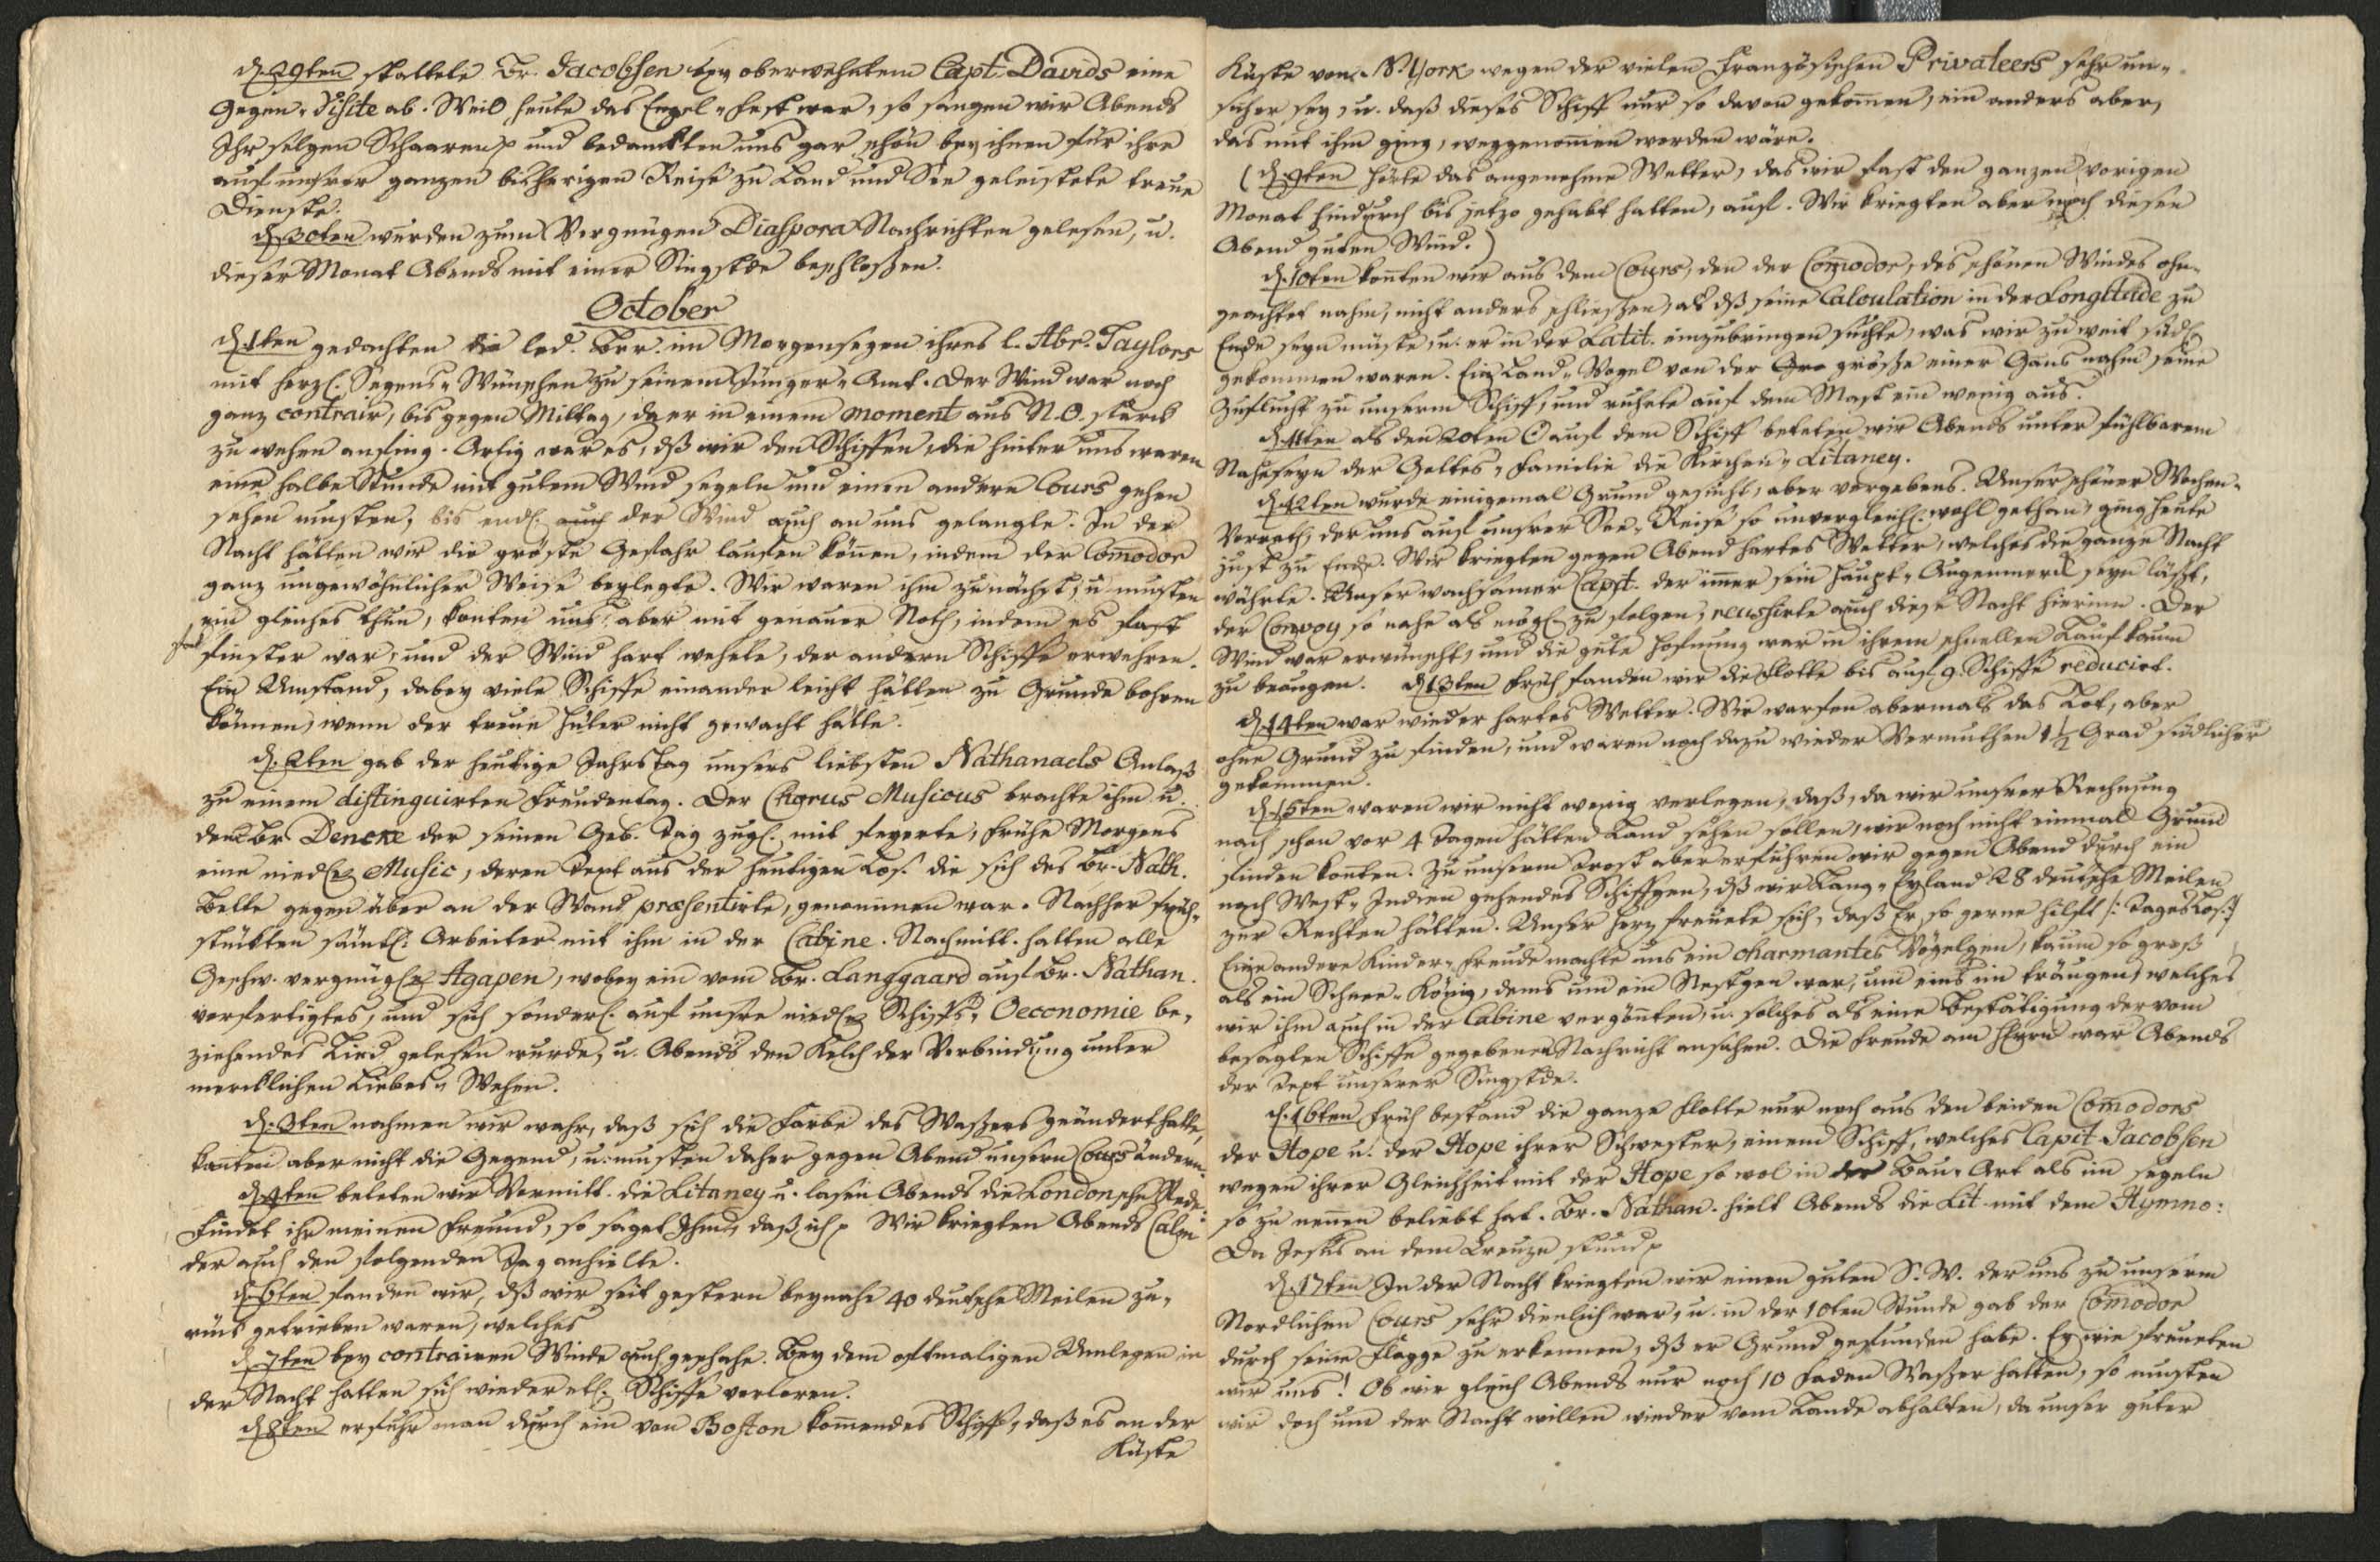 d. 29ten stattete Br. Jacobsen bey oberwehntem Capt. Davids eine
Gegen-Visite ab. Weil heute das Engel-Fest war, so sangen wir Abends
Ihr selgen Schaaren p und bedanckten uns gar schön bey ihnen für ihre
auf unsrer ganzen bisherigen Reise zu Land und See geleistete treue
Dienste.
d. 30ten wurden zum Vergnügen Diaspora Nachrichten gelesen, u.
dieser Monat Abends mit einer Singstde beschloßen.
October
d. 1ten gedachten die led. Brr. im Morgensegen ihres l. Abr. Taylors
mit herzl. Segens-Wünschen zu seinem Jünger-Amt. Der Wind war noch
ganz contrair, bis gegen Mittag, da er in einem moment aus N.O. starck
zu wehen anfing. Artig war es, dß wir den Schiffen, die hinter uns waren
eine halbe Stunde mit gutem Wind segeln und einen andern Cours gehen
sehen musten, bis endl. auch der Wind auch an uns gelangte. In der
Nacht hätten wir die gröste Gefahr laufen können, indem der Comodor
ganz ungewöhnlicher Weise beylegte. Wir waren ihm zunächst, u musten
ein gleiches thun, konten uns aber mit genauer Noth, indem es fast
stock finster war, und der Wind hart wehete, der andern Schiffe erwehren.
Ein Umstand, dabey viele Schiffe einander leicht hätten zu Grunde bohren
können, wenn der treue Hüter nicht gewacht hätte.
d. 2ten gab der heutige Jahrstag unsers liebsten Nathanaels Anlaß
zu einem distinguirten Freudentag. Der Chorus Musicus brachte ihm u.
dem Br. Dencke der seinen Geb. Tag zugl. mit feyerte, frühe Morgens
eine niedl. Music, deren Text aus der heutigen Los. die sich des Br. Nath.
Bette gegen über an der Wand præsentirte, genommen war. Nachher früh-
stükten sämtl. Arbeiter mit ihm in der Cabine. Nachmitt. hatten alle
Geschw. vergnügl. Agapen, wobey ein vom Br. Langgaard auf Br. Nathan.
verfertigtes, und sich sonderl. auf unsre niedl. Schiffs-Oeconomie be-
ziehendes Lied gelesen wurde, u. Abends den Kelch der Verbindung unter
mercklichen Liebes-Wehen.
d. 3ten nahmen wir wahr, daß sich die Farbe des Waßers geändert hatte,
kanten aber nicht die Gegend, u. musten daher gegen Abend unsern Cours ändern.
d. 4ten beteten wir Vormitt. die Litaney u. lasen Abends die Londonsche Rede:
Findet ihr meinen Freund, so saget Ihm, daß ich p Wir kriegten Abends Calm
der auch den folgenden Tag anhielte.
d. 6ten fanden wir, dß wir seit gestern beynahe 40 deutsche Meilen zu-
rück getrieben waren, welches
d. 7ten bey contrairen Winde auch geschahe. Bey dem oftmaligen Umlegen in
der Nacht hatten sich wieder etl. Schiffe verloren.
d. 8ten erfuhr man durch ein von Boston komendes Schiff, daß es an der
Küste
Küste von N. York wegen der vielen Französischen Privateers sehr un-
sicher sey, u. daß dieses Schiff nur so davon gekomen, ein anders aber,
das mit ihm ging, weggenomen worden wäre.
(d. 9ten hörte das angenehme Wetter, das wir fast den ganzen vorigen
Monat hindurch bis jetzo gehabt hatten, auf. Wir kriegten aber noch diesen
Abend guten Wind.)
d. 10ten konten wir aus dem Cours, den der Comodor, des schönen Windes ohn-
geachtet nahm, nicht anders schließen, als dß seine Calculation in der Longitude zu
Ende seyn müste, u. er in der Latit. einzubringen suchte, was wir zu weit südl.
gekommen waren. Ein Land-Vogel von der Gro größe einer Gans nahm seine
Zuflucht zu unserm Schiff, und ruhete auf dem Mast ein wenig aus.
d. 11ten als den 20ten ☉ auf dem Schiff beteten wir Abends unter fühlbarem
Naheseyn der Gottes-Familie die Kirchen-Litaney.
d. 12ten wurde einigemal Grund gesucht, aber vergebens. Unser schöner Wochen-
Vorrath, der uns auf unsrer See-Reise so unvergleichl. wohl gethan, ging heute
just zu Ende. Wir kriegten gegen Abend hartes Wetter, welches die ganze Nacht
währte. Unser wachsamer Capit. der imer sein Haupt-Augenmerck seyn läßt,
der Convoy so nahe als mögl. zu folgen, reushirte auch diese Nacht hierinn. Der
Wind war erwünscht, und die gute Hofnung war in ihrem schnellen Lauf kaum
zu beäugen. d. 13ten Früh fanden wir die Flotte bis auf 9. Schiffe reducirt.
d. 14ten war wieder hartes Wetter. Wir warfen abermals das Lot, aber
ohne Grund zu finden, und waren noch dazu wieder Vermuthen 1½ Grad südlicher
gekommen.
d. 15ten waren wir nicht wenig verlegen, daß, da wir unserer Rechnung
nach schon vor 4 Tagen hätten Land sehen sollen, wir noch nicht einmal Grund
finden konten. Zu unserm Trost aber erfuhren wir gegen Abend durch ein
nach West-Indien gehendes Schiffgen, dß wir Lang-Eyland 28 deutsche Meilen
zur Rechten hätten. Unser Herz freuete sich, daß Er so gerne hilft /: Tages Los. :/
Eine andere Kinder-Freude machte uns ein charmantes Vögelgen, kaum so groß
als ein Schnee-König, dems um ein Nestgen war, um eins im träugen, welches
wir ihm auch in der Cabine vergönnten, u. solches als eine Bestätigung der vom
besagten Schiffe gegebenen Nachricht ansahen. Die Freude am HErrn war Abends
der Text unserer Singstde.
d. 16ten Früh bestand die ganze Flotte nur noch aus den beiden Comodors
der Hope u. der Hope ihrer Schwester, einem Schiff, welches Capit. Jacobsen
wegen ihrer Gleichheit mit der Hope so wol in der Bau-Art als im segeln
so zu nenen beliebt hat. Br. Nathan. hielt Abends die Lit. mit dem Hymno:
Da Jesus an dem Creuze stund p
d. 17ten In der Nacht kriegten wir einen guten S. W. der uns zu unserm
Nordlichen Cours sehr dienlich war, u. in der 10ten Stunde gab der Comodor
durch seine Flagge zu erkennen, dß er Grund gefunden habe. Ey wie freueten
wir uns! Ob wir gleich Abends nur noch 10 Faden Waßer hatten, so musten
wir doch um der Nacht willen wieder vom Lande abhalten, da unser guter